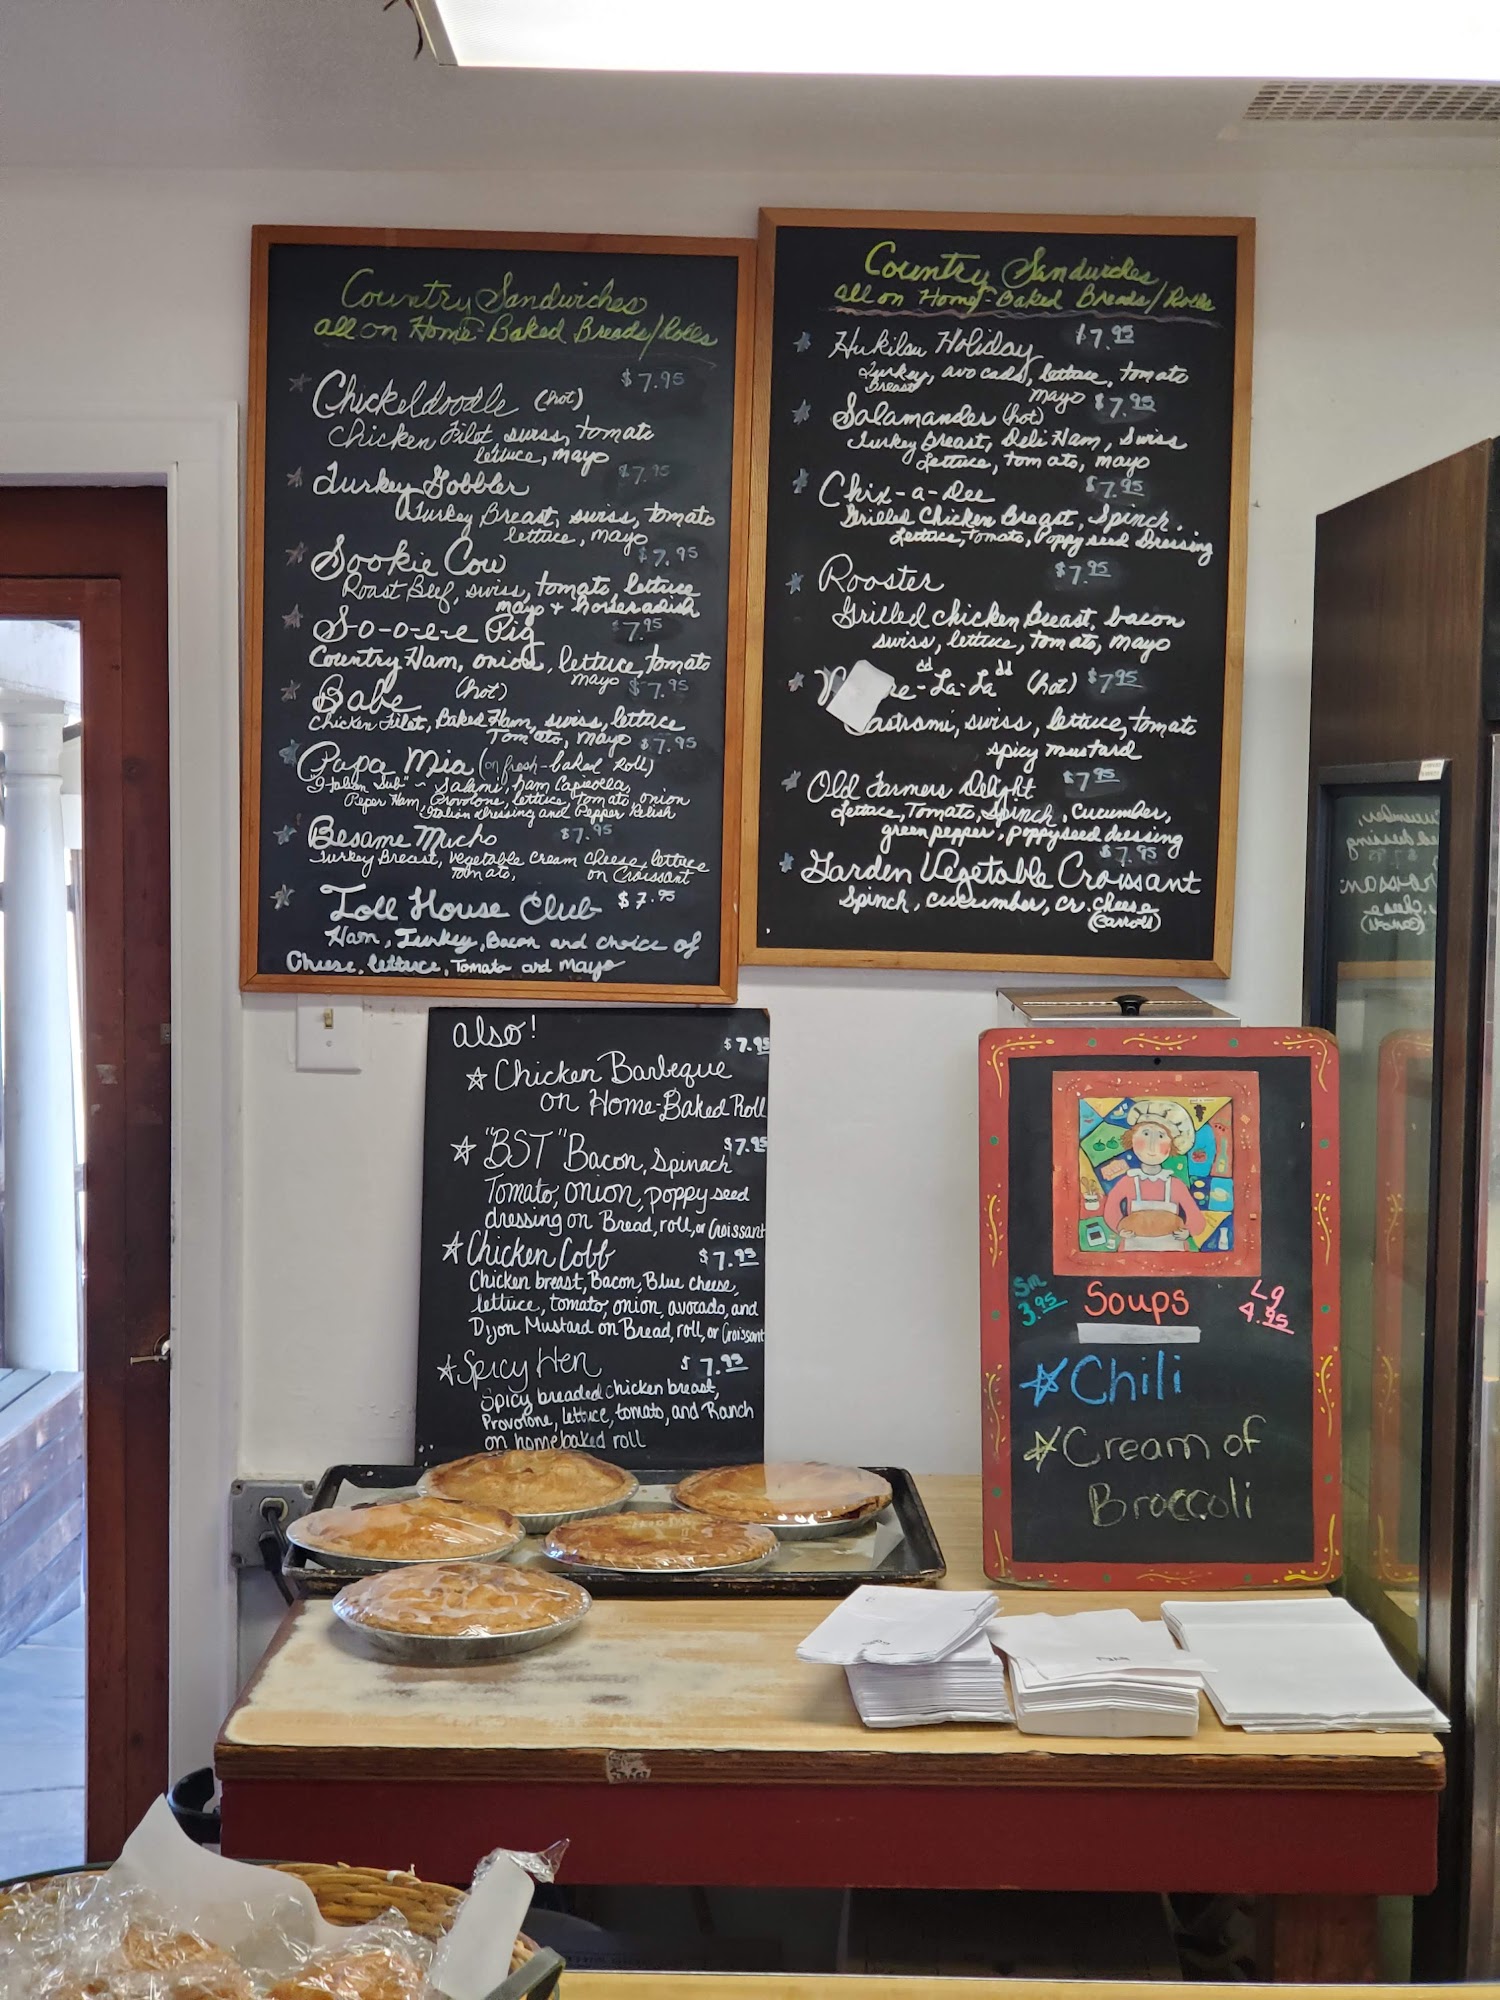 Country Sandwiches
all on Home-Baked Breads/Rolls
$7.95
Chickeldoodle (hot)
Chicken Filet, swiss, tomato
lettuce, mayo
$7.95
Turkey Gobbler
Turkey Breast, swiss, tomato
lettuce, mayo
Sookie Cow $7.95
Roast Beef, swiss, tomato, lettuce
mayo + horseradish
S-o-o-e-e Pig $7.95
Country Ham, onion, lettuce, tomato
mayo
Babe (hot) $7.95
Chicken Filet, Baked Ham, swiss, lettuce
Tomato, mayo
$7.95
Papa Mia (on fresh-baked Roll)
Italian Sub" - Salami, ham Capicolla,
Peper Ham, Provolone, lettuce, tomato onion
Italian dressing and Pepper Relish
Besame Mucho $7.95
Turkey Breast, vegetable cream cheese, lettuce
tomato, on Croissant
Toll House Club $7.95
Ham, Turkey, Bacon and choice of
Cheese, lettuce, Tomato and mayo
Country Sandwiches
all on Home-Baked Breads/Rolls
Hukilau Holiday $7.95
Turkey, avocado, lettuce, tomato
Breast mayo
Salamander (hot) $7.95
Turkey Breast, Deli Ham, Swiss
Lettuce, tomato, mayo
Chix-a-Dee $7.95
Grilled Chicken Breast, Spinch.
Lettuce, tomato, Poppy seed Dressing
Rooster $7.95
Grilled chicken Breast, bacon
swiss, lettuce, tomato, mayo
re-La-La (hot) $7.95
Pastrami, swiss, lettuce, tomato
spicy mustard
Old Farmers Delight $7.95
Lettuce, Tomato, Spinch, Cucumber,
green pepper, poppyseed dressing
$7.95
Garden Vegetable Croissant
Spinch, cucumber, cr. cheese
(Carrots)
also!
$7.95
Chicken Barbeque
on Home-Baked Roll
$7.95
"BST" Bacon, Spinach
Tomato, onion, poppy seed
dressing on Bread, roll, or Croissant
Chicken Cobb $7.95
Chicken breast, Bacon, Blue cheese,
lettuce, tomato, onion, avocado, and
Dijon Mustard on Bread, roll, or Croissant
Spicy Hen $7.95
Spicy breaded chicken breast,
Provolone, lettuce, tomato, and Ranch
on homebaked roll
Sm
3.95
Soups
Lg
4.95
Chili
Cream of
Broccoli